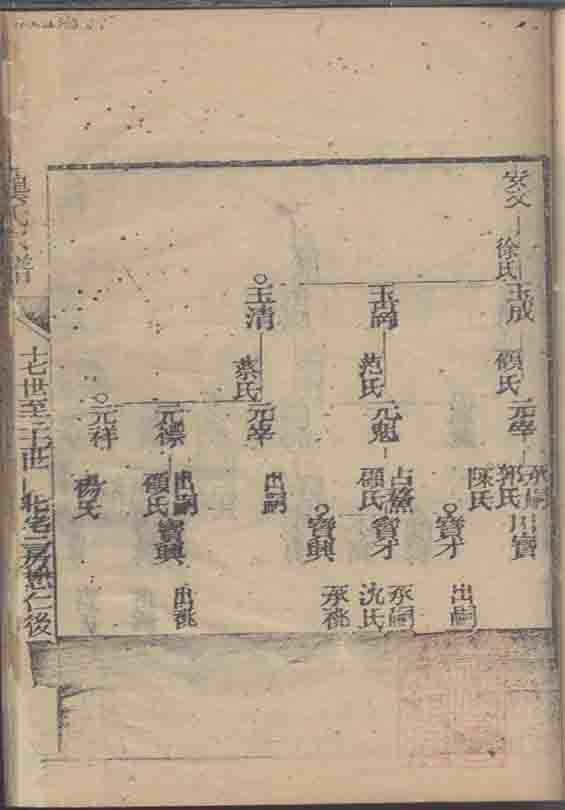 徐氏
玉成
顧氏
元宰
承嗣
郭氏
陳氏
寶
寶才
出嗣
范氏
元魁
顧氏
寶才
承嗣
沈氏
寶興
承祧
玉清
蔡氏
元宰
出嗣
元標
出嗣
顧氏
寶興
出祧
元祥
楊氏
氏宗譜
十七世至二十世
北宅二房懋仁後